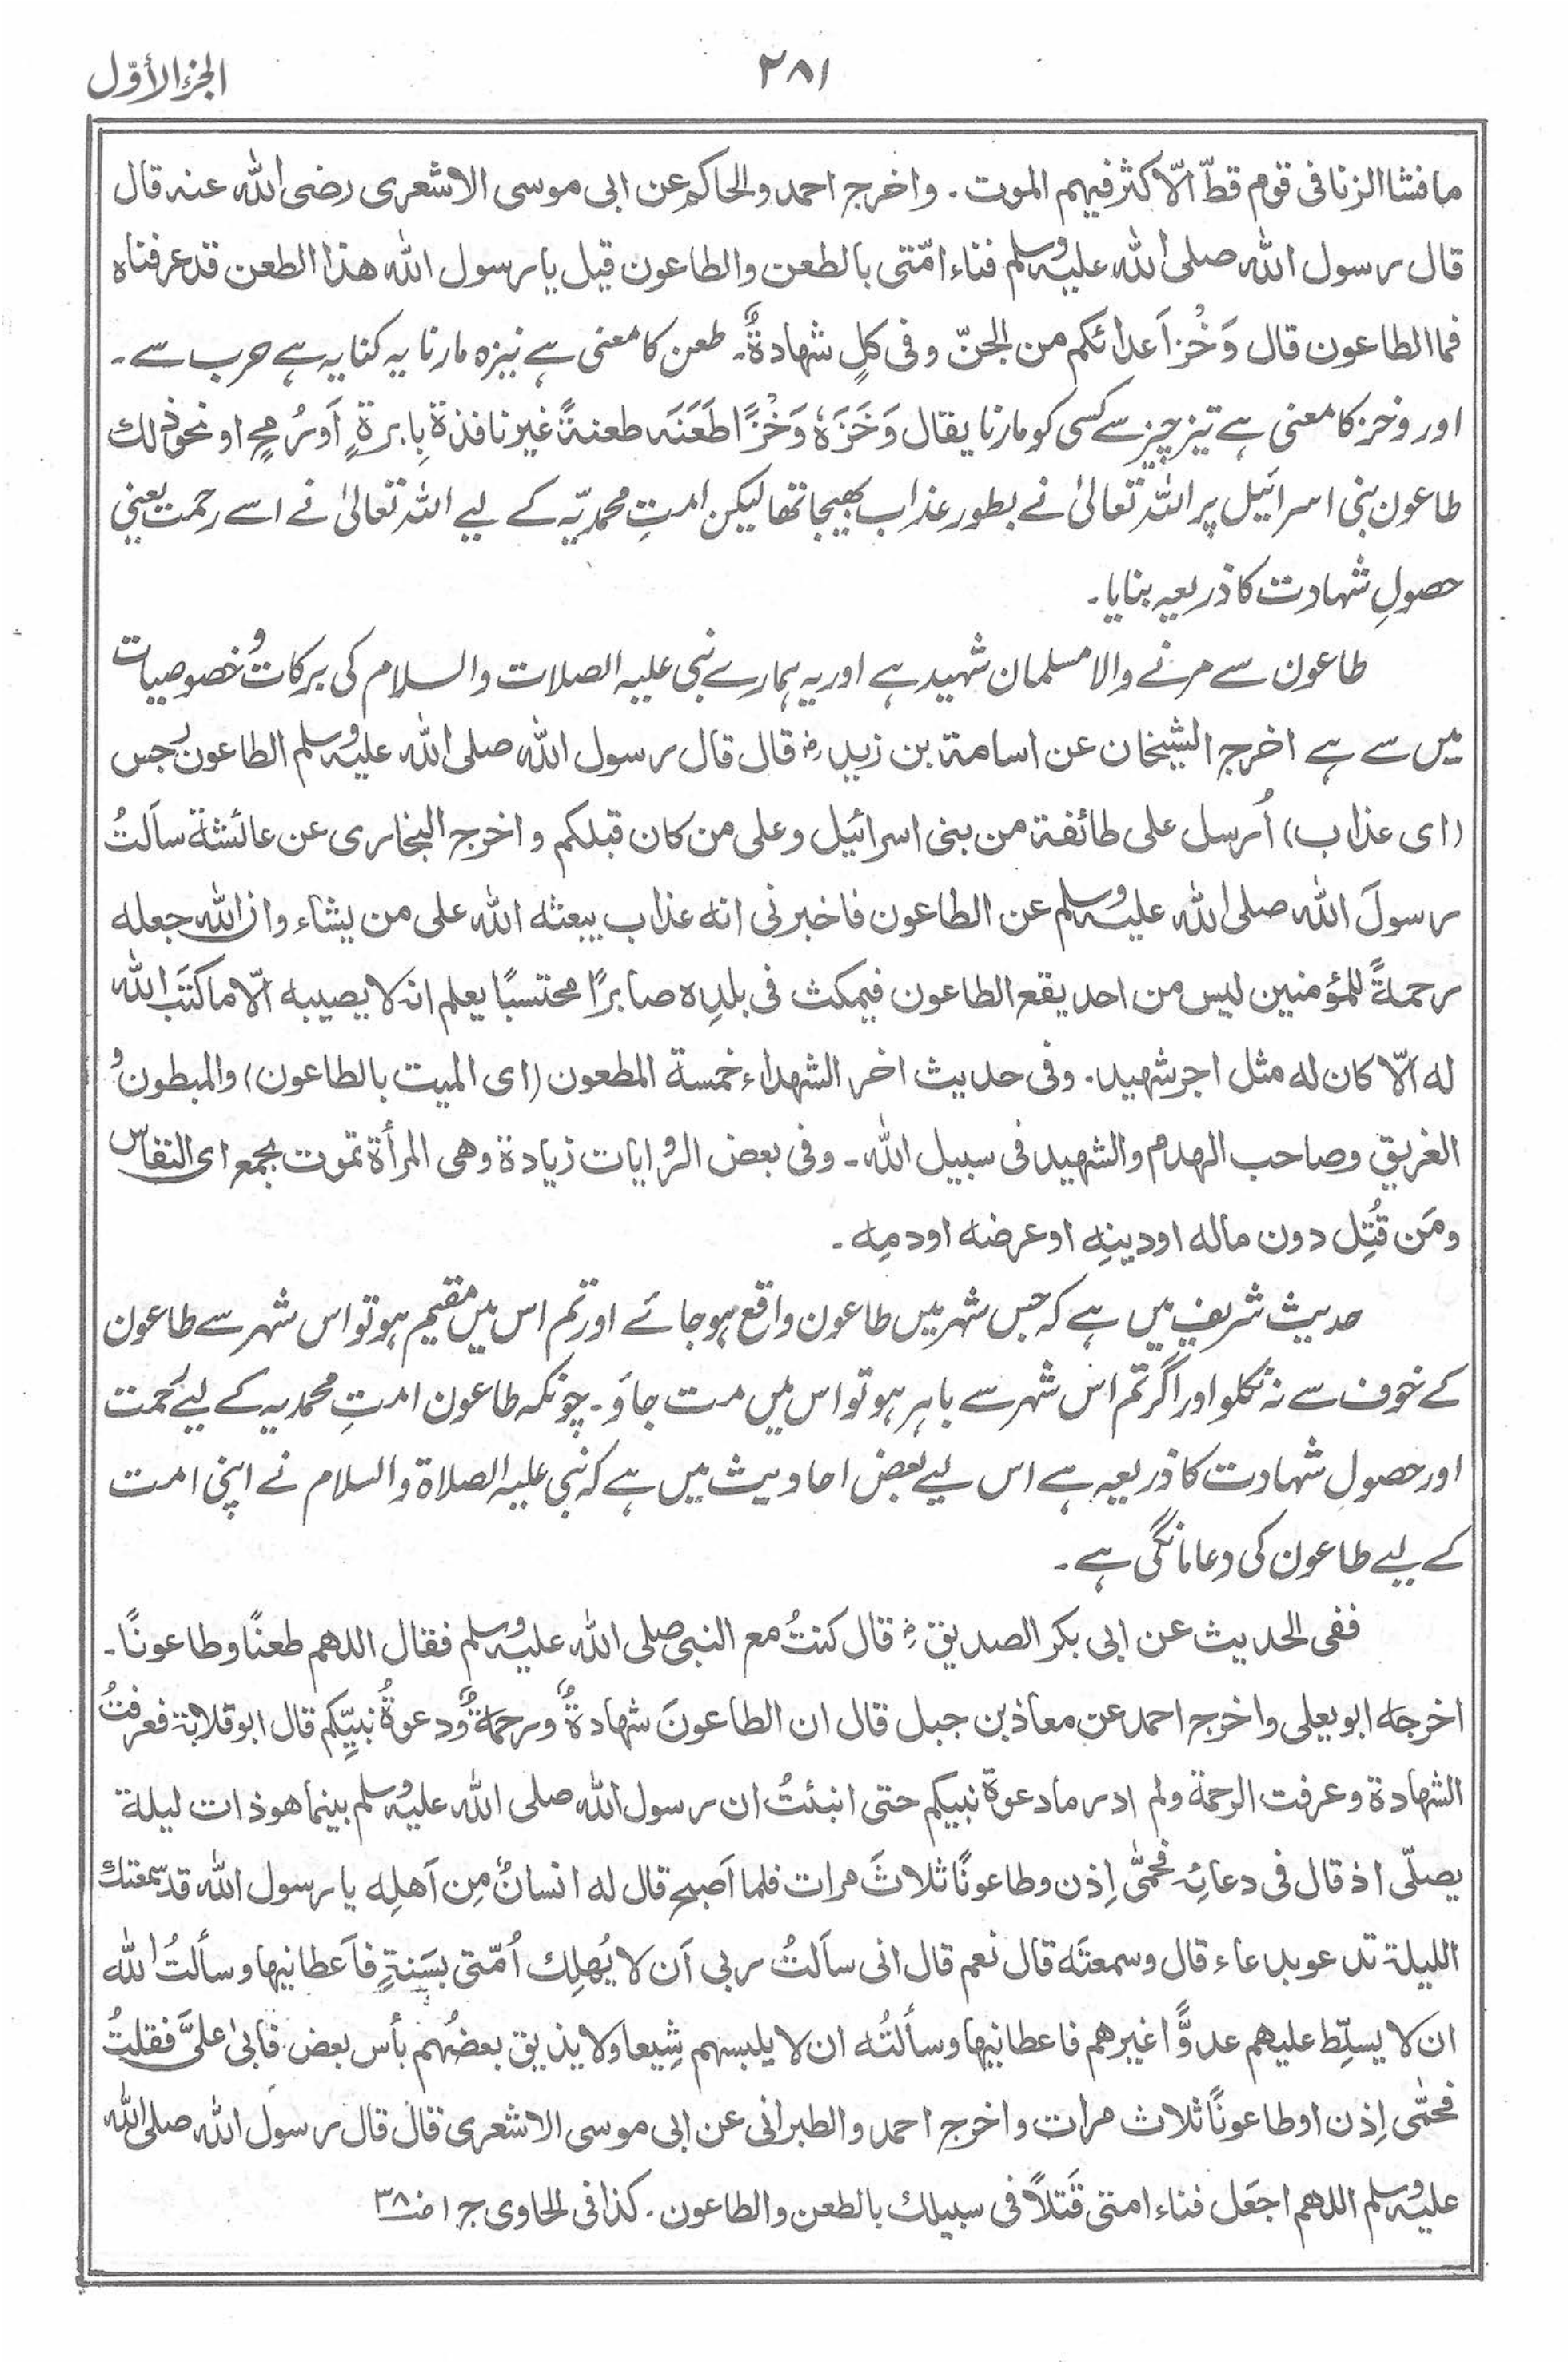 الجزء الأوّل
٢٨١
ما فشا الزنا فی قوم قطّ الّا کثر فیہم الموت۔ واخرج احمد والحاکم عن ابی موسی الاشعری رضی اللہ عنہ قال
قال رسول اللہ صلی اللہ علیہ وسلم فناء امّتی بالطعن والطاعون قیل یا رسول اللہ ھذا الطعن قد عرفناہ
فما الطاعون قال وَخْز اَعدائکم من الجنّ وفی کلٍ شھادةٌ۔ طعن کا معنی ہے نیزہ مارنا یہ کنایہ ہے حرب سے۔
اور وخز کا معنی ہے تیز چیز سے کسی کو مارنا یقال وَخَزَہٗ وَخْزًا طَعَنَہ طعنةً غیر نافذة بِابرةٍ اَورُمحٍ او نحو ذلك
طاعون بنی اسرائیل پر اللہ تعالیٰ نے بطور عذاب بھیجا تھا لیکن امتِ محمدیّہ کے لیے اللہ تعالیٰ نے اسے رحمت یعنی
حصولِ شہادت کا ذریعہ بنایا۔
طاعون سے مرنے والا مسلمان شہید ہے اور یہ ہمارے نبی علیہ الصلات والسلام کی برکات و خصوصیات
میں سے ہے اخرج الشیخان عن اسامة بن زید رض قال قال رسول اللہ صلی اللہ علیہ وسلم الطاعون رجس
(ای عذاب) اُرسل علی طائفة من بنی اسرائیل وعلی من کان قبلکم و اخرج البخاری عن عائشة سألتُ
رسولَ اللہ صلی اللہ علیہ وسلم عن الطاعون فاخبرنی انه عذاب یبعثه اللہ علی من یشاء وان اللہ جعله
رحمةً للمؤمنین لیس من احد یقع الطاعون فیمکث فی بلدِہ صابرًا محتسبًا یعلم انہ لا یصیبه الّا ما کتَب اللہ
له الّا کان له مثل اجر شھید۔ وفی حدیث اخر الشھداء خمسة المطعون (ای المیت بالطاعون) والمبطون و
الغریق وصاحب الہدم والشہید فی سبیل اللہ۔ وفی بعض الروایات زیادة وھی المرأة تموت بجمع ای النفاس
ومَن قُتِل دون ماله اودینِه اوعرضه اودمِه۔
حدیث شریف میں ہے کہ جس شہر میں طاعون واقع ہو جائے اور تم اس میں مقیم ہو تو اس شہر سے طاعون
کے خوف سے نہ نکلو اور اگر تم اس شہر سے باہر ہو تو اس میں مت جاؤ۔ چونکہ طاعون امتِ محمدیہ کے لیے رحمت
اور حصولِ شہادت کا ذریعہ ہے اس لیے بعض احادیث میں ہے کہ نبی علیہ الصلاة والسلام نے اپنی امت
کے لیے طاعون کی دعا مانگی ہے۔
ففی الحدیث عن ابی بکر الصدیق رض قال کنتُ مع النبی صلی اللہ علیہ وسلم فقال اللھم طعنًا وطاعونًا۔
اخرجہ ابو یعلی واخرج احمد عن معاذ بن جبل قال ان الطاعونَ شھادةٌ ورحمةٌ ودعوةُ نبیِّکم قال ابوقلابة فعرفتُ
الشھادة وعرفت الرحمة ولم ادر ما دعوة نبیکم حتی انبئتُ ان رسول اللہ صلی اللہ علیہ وسلم بینما ھو ذات لیلة
یصلّی اذ قال فی دعائہ فحُمّٰی اِذن وطاعونًا ثلاثَ مرات فلما اَصبح قال له انسانٌ مِن اَھلِه یا رسول اللہ قد سمعتك
اللیلة تدعو بدعاء قال وسمعتَه قال نعم قال انی سألتُ ربی اَن لا یُھلِك اُمّتی بسَنةٍ فاَعطانیھا وسألتُ اللہ
ان لا یسلِّط علیھم عدوًّا غیرھم فاعطانیھا وسألتُه ان لا یلبسھم شِیعا ولا یذیق بعضُہم بأس بعض فابیٰ علیَّ فقلتُ
فحُمّٰی اِذن اوطاعونًا ثلاث مرات واخرج احمد والطبرانی عن ابی موسی الاشعری قال قال رسول اللہ صلی اللہ
علیہ وسلم اللھم اجعَل فناء امتی قَتلاً فی سبیلك بالطعن والطاعون۔ کذا فی الحاوی جـ ۱ صـ ۳۸